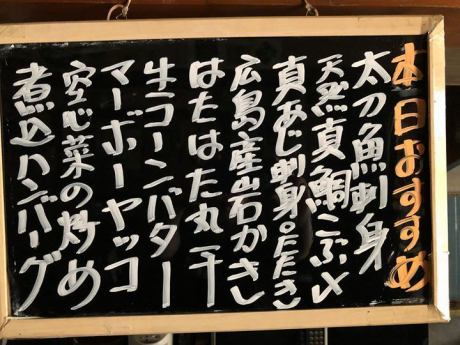 本日おすすめ
太刀魚刺身
天然真鯛こぶ〆
真あじ刺身orたたき
広島産岩かき
はたはた丸干
生コーンバター
マーボーヤッコ
空心菜の炒め
煮込ハンバーグ